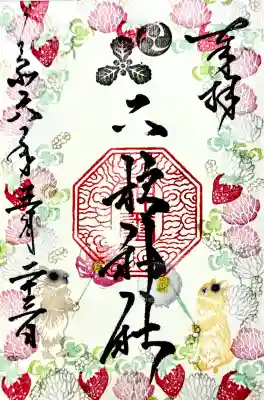 奉拝
六 神社
令和六年五月二十三日